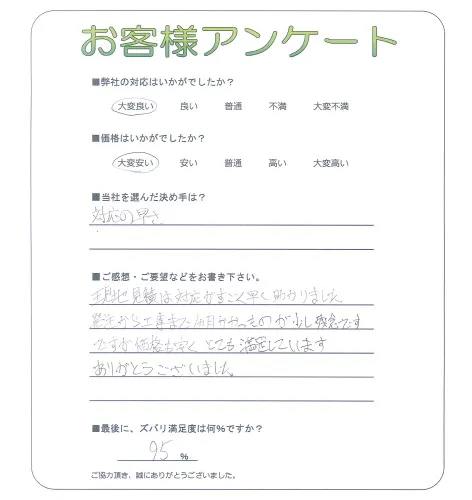 お客様アンケート
■弊社の対応はいかがでしたか？
大変良い 良い 普通 不満 大変不満
■価格はいかがでしたか？
大変安い 安い 普通 高い 大変高い
■当社を選んだ決め手は？
対応の早さ
■ご感想・ご要望などをお書き下さい。
現地見積は対応がすごく早く助かりました
発注から工事まで1ヶ月かかったものが少し残念です
ですが価格も安くとても満足しています
ありがとうございました。
■最後に、ズバリ満足度は何％ですか？
95 %
ご協力頂き、誠にありがとうございました。